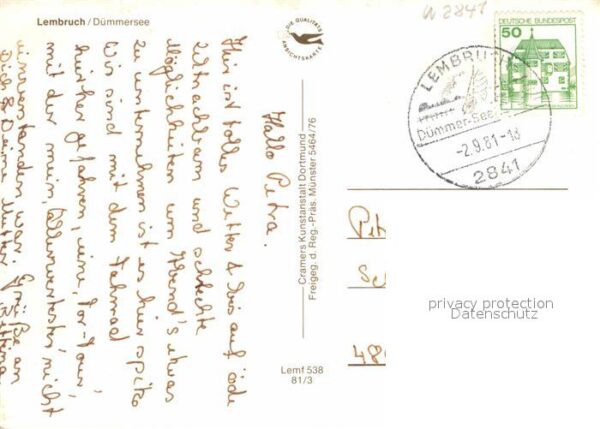 Lembruch / Dümmersee
DIE QUALITÄTS
ANSICHTSKARTE
W 2841
DEUTSCHE BUNDESPOST
50
LEMBRUCH
Dümmer-See
-2.9.81-18
2841
Hallo Petra.
Hier ist tolles Wetter & bis auf öde
Zeltnachbarn und schlechte
Möglichkeiten um Abend's etwas
zu unternehmen ist es hier spitze
Wir sind mit dem Fahrrad
hierher gefahren, eine, Tor-Tour,
mit der mein, Allerwertester, nicht
einverstanden war. Grüße an
Dich & Deine Mutter Bettina
Cramers Kunstanstalt Dortmund
Freigeg. d. Reg.-Präs. Münster 5464/76
Lemf 538
81/3
Pet
Sc
480
privacy protection
Datenschutz